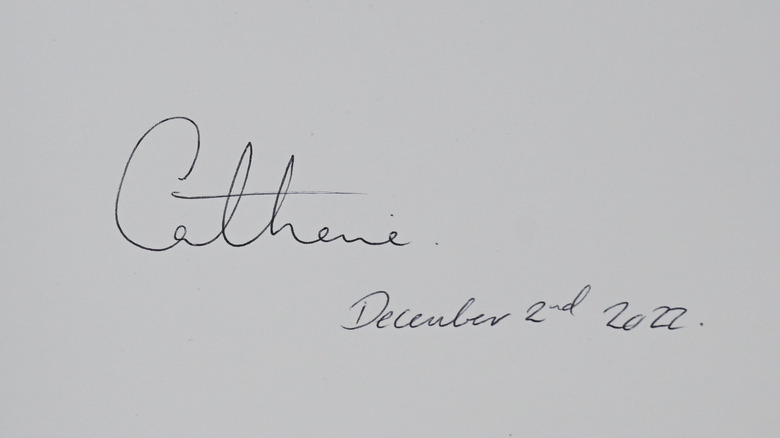 Catherine.
December 2nd 2022.